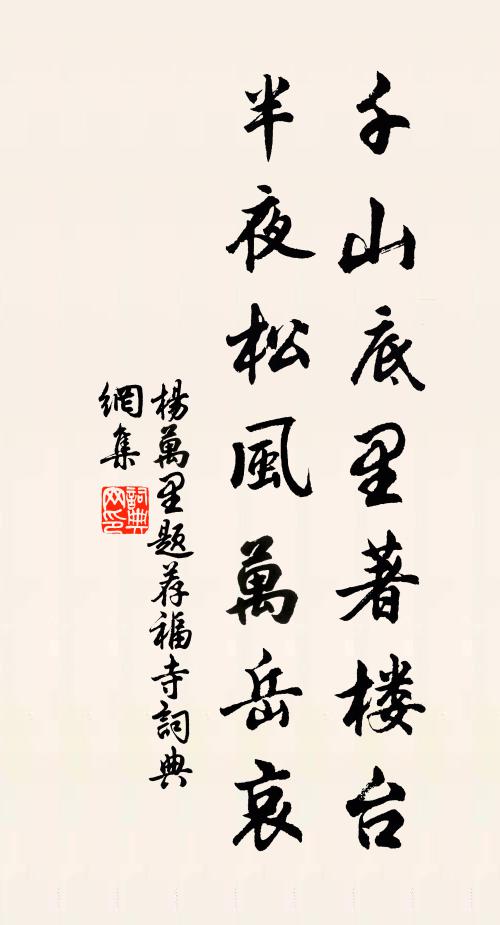 千山底里著楼台
半夜松風萬岳哀
楊萬里題荐福寺詞典
網集
詞典
网印